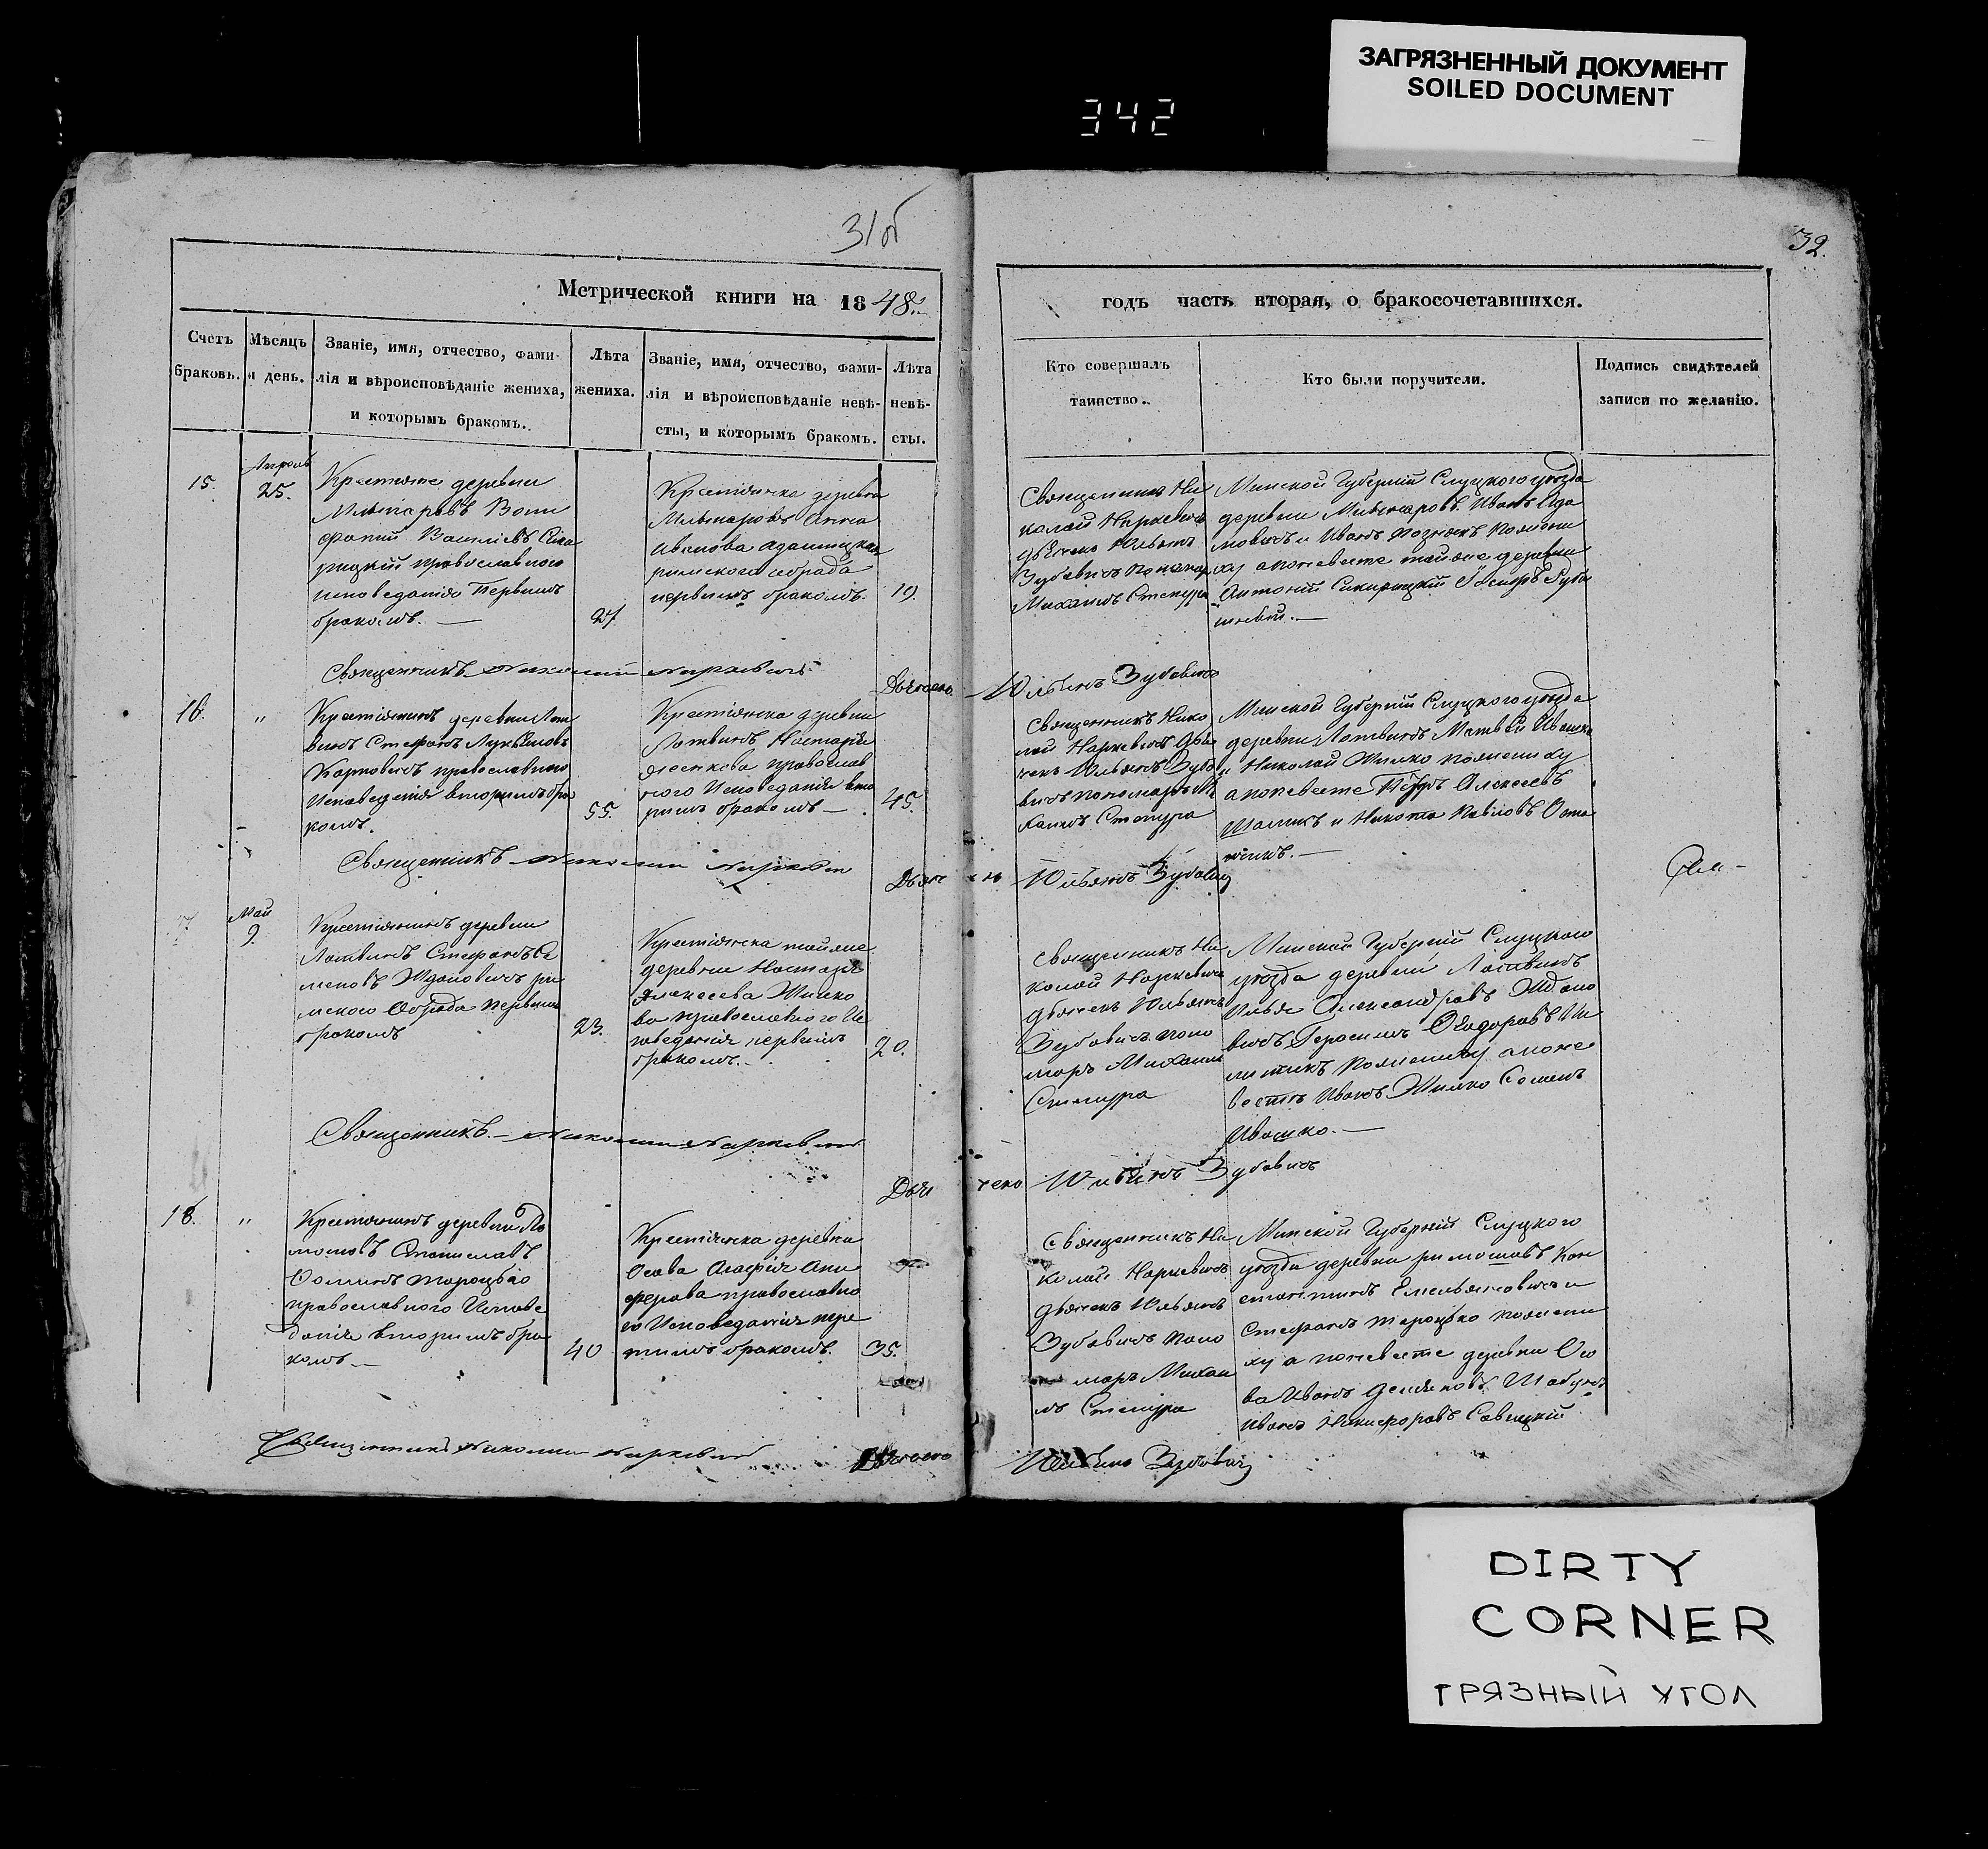 ЗАГРЯЗНЕННЫЙ ДОКУМЕНТ
SOILED DOCUMENT
342
31об
32.
Метрической книги на 1848
годъ часть вторая, о бракосочетавшихся.
Счетъ браковъ.
Мѣсяцъ и день.
Званіе, имя, отчество, фами-
лія и вѣроисповѣданіе жениха,
и которымъ бракомъ.
Лѣта
жениха.
Званіе, имя, отчество, фами-
лія и вѣроисповѣданіе невѣ-
сты, и которымъ бракомъ.
Лѣта
невѣ-
сты.
Кто совершалъ
таинство.
Кто были поручители.
Подпись свидѣтелей
записи по желанію.
15.
Апрель
25.
деревни
Василіевъ
рицкій православного
исповеданія первымъ
бракомъ.
27
Крестіянка деревни
Анна
Иванова
римского обрада
первымъ бракомъ.
19.
Священникъ Ни
колай Наркевичъ
Зубовичъ
Михаилъ Стемура
Минской Губерніи Слуцкого уезда
деревни Иванъ
и Иванъ
ху а поневесте тойже деревни
Антоній Сикирицкій
Священникъ Николай Наркевичъ
Дьячекъ Юльянъ Зубовичъ
16.
"
Крестіянинъ деревни Лот
винъ Стефанъ Лукьяновъ
Карповичъ православного
Исповеденія вторымъ бра
комъ.
55.
Крестіянка деревни
Лотвинъ Настазія
православ
ного Исповеданія вто
рымъ бракомъ
45.
Священникъ Нико
лай Наркевичъ Дья
чекъ Юльянъ Зубо
вичъ пономаръ Ми
хаилъ Стемура
Минской Губерніи Слуцкого уезда
деревни Лотвинъ Матвей Ивашко
и Николай Жилко пожениху
а поневесте Петръ Алексеевъ
и Никита Павловъ
Священникъ Николай Наркевичъ
Дьячекъ Юльянъ Зубовичъ
Май
9.
Крестіянинъ деревни
Лотвинъ Стефанъ Се
меновъ Ждановичъ ри
мского Обрада первымъ
бракомъ
23.
Крестіянка тойже
деревни Настазія
Алексеева Жилко
ва православного Ис
поведанія первымъ
бракомъ.
20.
Священникъ Ни
колай Наркевичъ
дьячекъ Юльянъ
Зубовичъ поно
маръ Михаилъ
Стемура
Минской Губерніи Слуцкого
уезда деревни Лотвинъ
Илья Александровъ Ждано
вичъ, Герасимъ Феодоровъ
пожениху, апоне
весте Иванъ Жилко Семенъ
Ивашко.
Священникъ Николай Наркевичъ
Дьячекъ Юльянъ Зубовичъ
18.
"
Крестіянинъ деревни
Станиславъ
православного Испове
данія вторымъ бра
комъ
40
Крестіянка деревни
Осова Агафія
православно
го Исповеданія
бракомъ.
35.
Священникъ Ни
колай Наркевичъ
дьячекъ Юльянъ
Зубовичъ поно
маръ Михаи
лъ Стемура
Минской Губерніи Слуцкого
уезда деревни Кон
стантинъ Емельяновичъ и
Стефанъ пожени
ху а поневесте деревни Осо
ва Иванъ
Иванъ Никифоровъ Савицкій
Священникъ Николай Наркевичъ
Дьячекъ Юльянъ Зубовичъ
DIRTY
CORNER
ГРЯЗНЫЙ УГОЛ